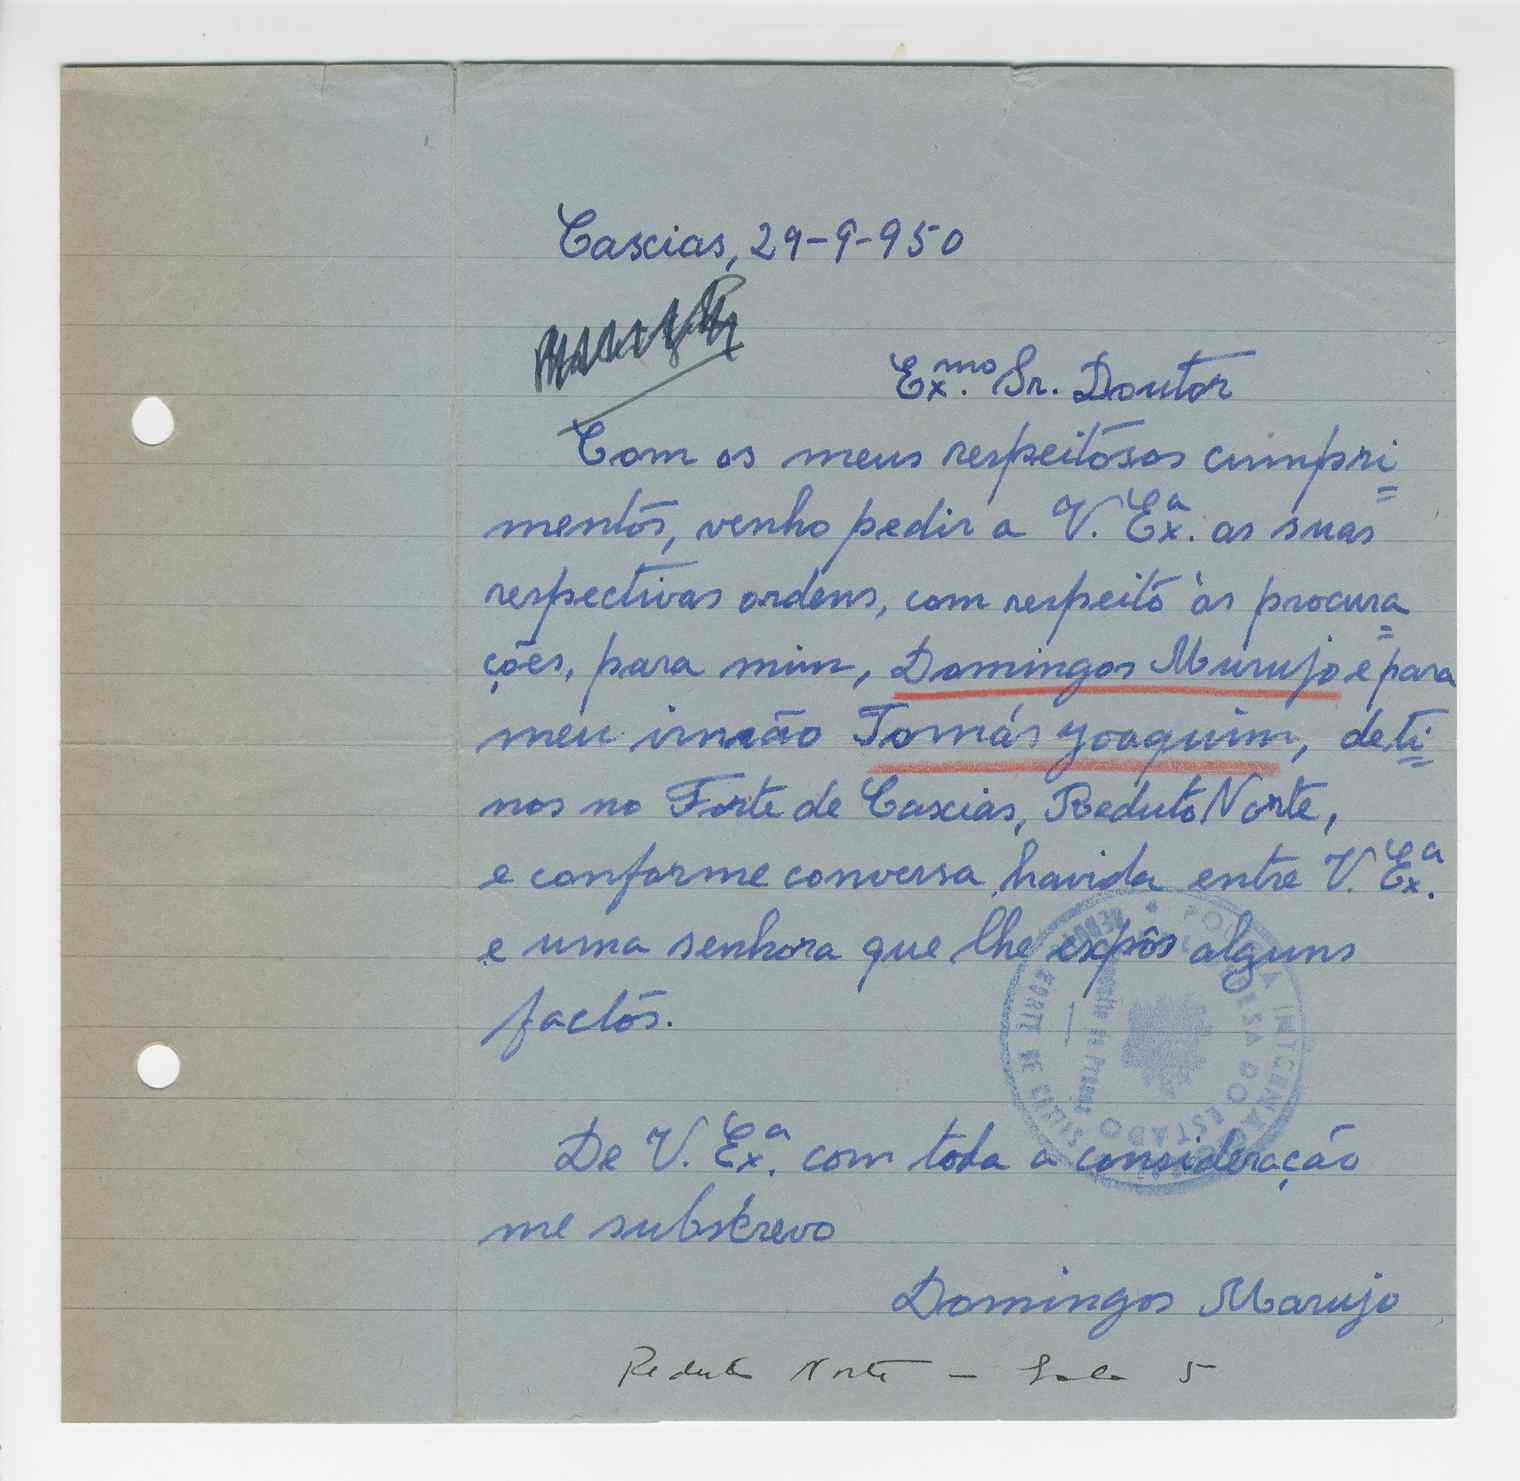 Caxias, 29-9-950
Ex.mo Sr. Doutor
Com os meus respeitosos cumpri=
mentos, venho pedir a V. Ex.a as suas
respectivas ordens, com respeito às procura=
ções, para mim, Domingos Marujo e para
meu irmão Tomás Joaquim, deti=
nos no Forte de Caxias, Reduto Norte,
e conforme conversa havida entre V. Ex.a
e uma senhora que lhe expôs alguns
factos.
POLÍCIA INTERNACIONAL
DEFESA DO ESTADO
Depósito de Presos
FORTE DE CAXIAS
De V. Ex.a com toda a consideração
me subscrevo
Domingos Marujo
Reduto Norte - Sala 5